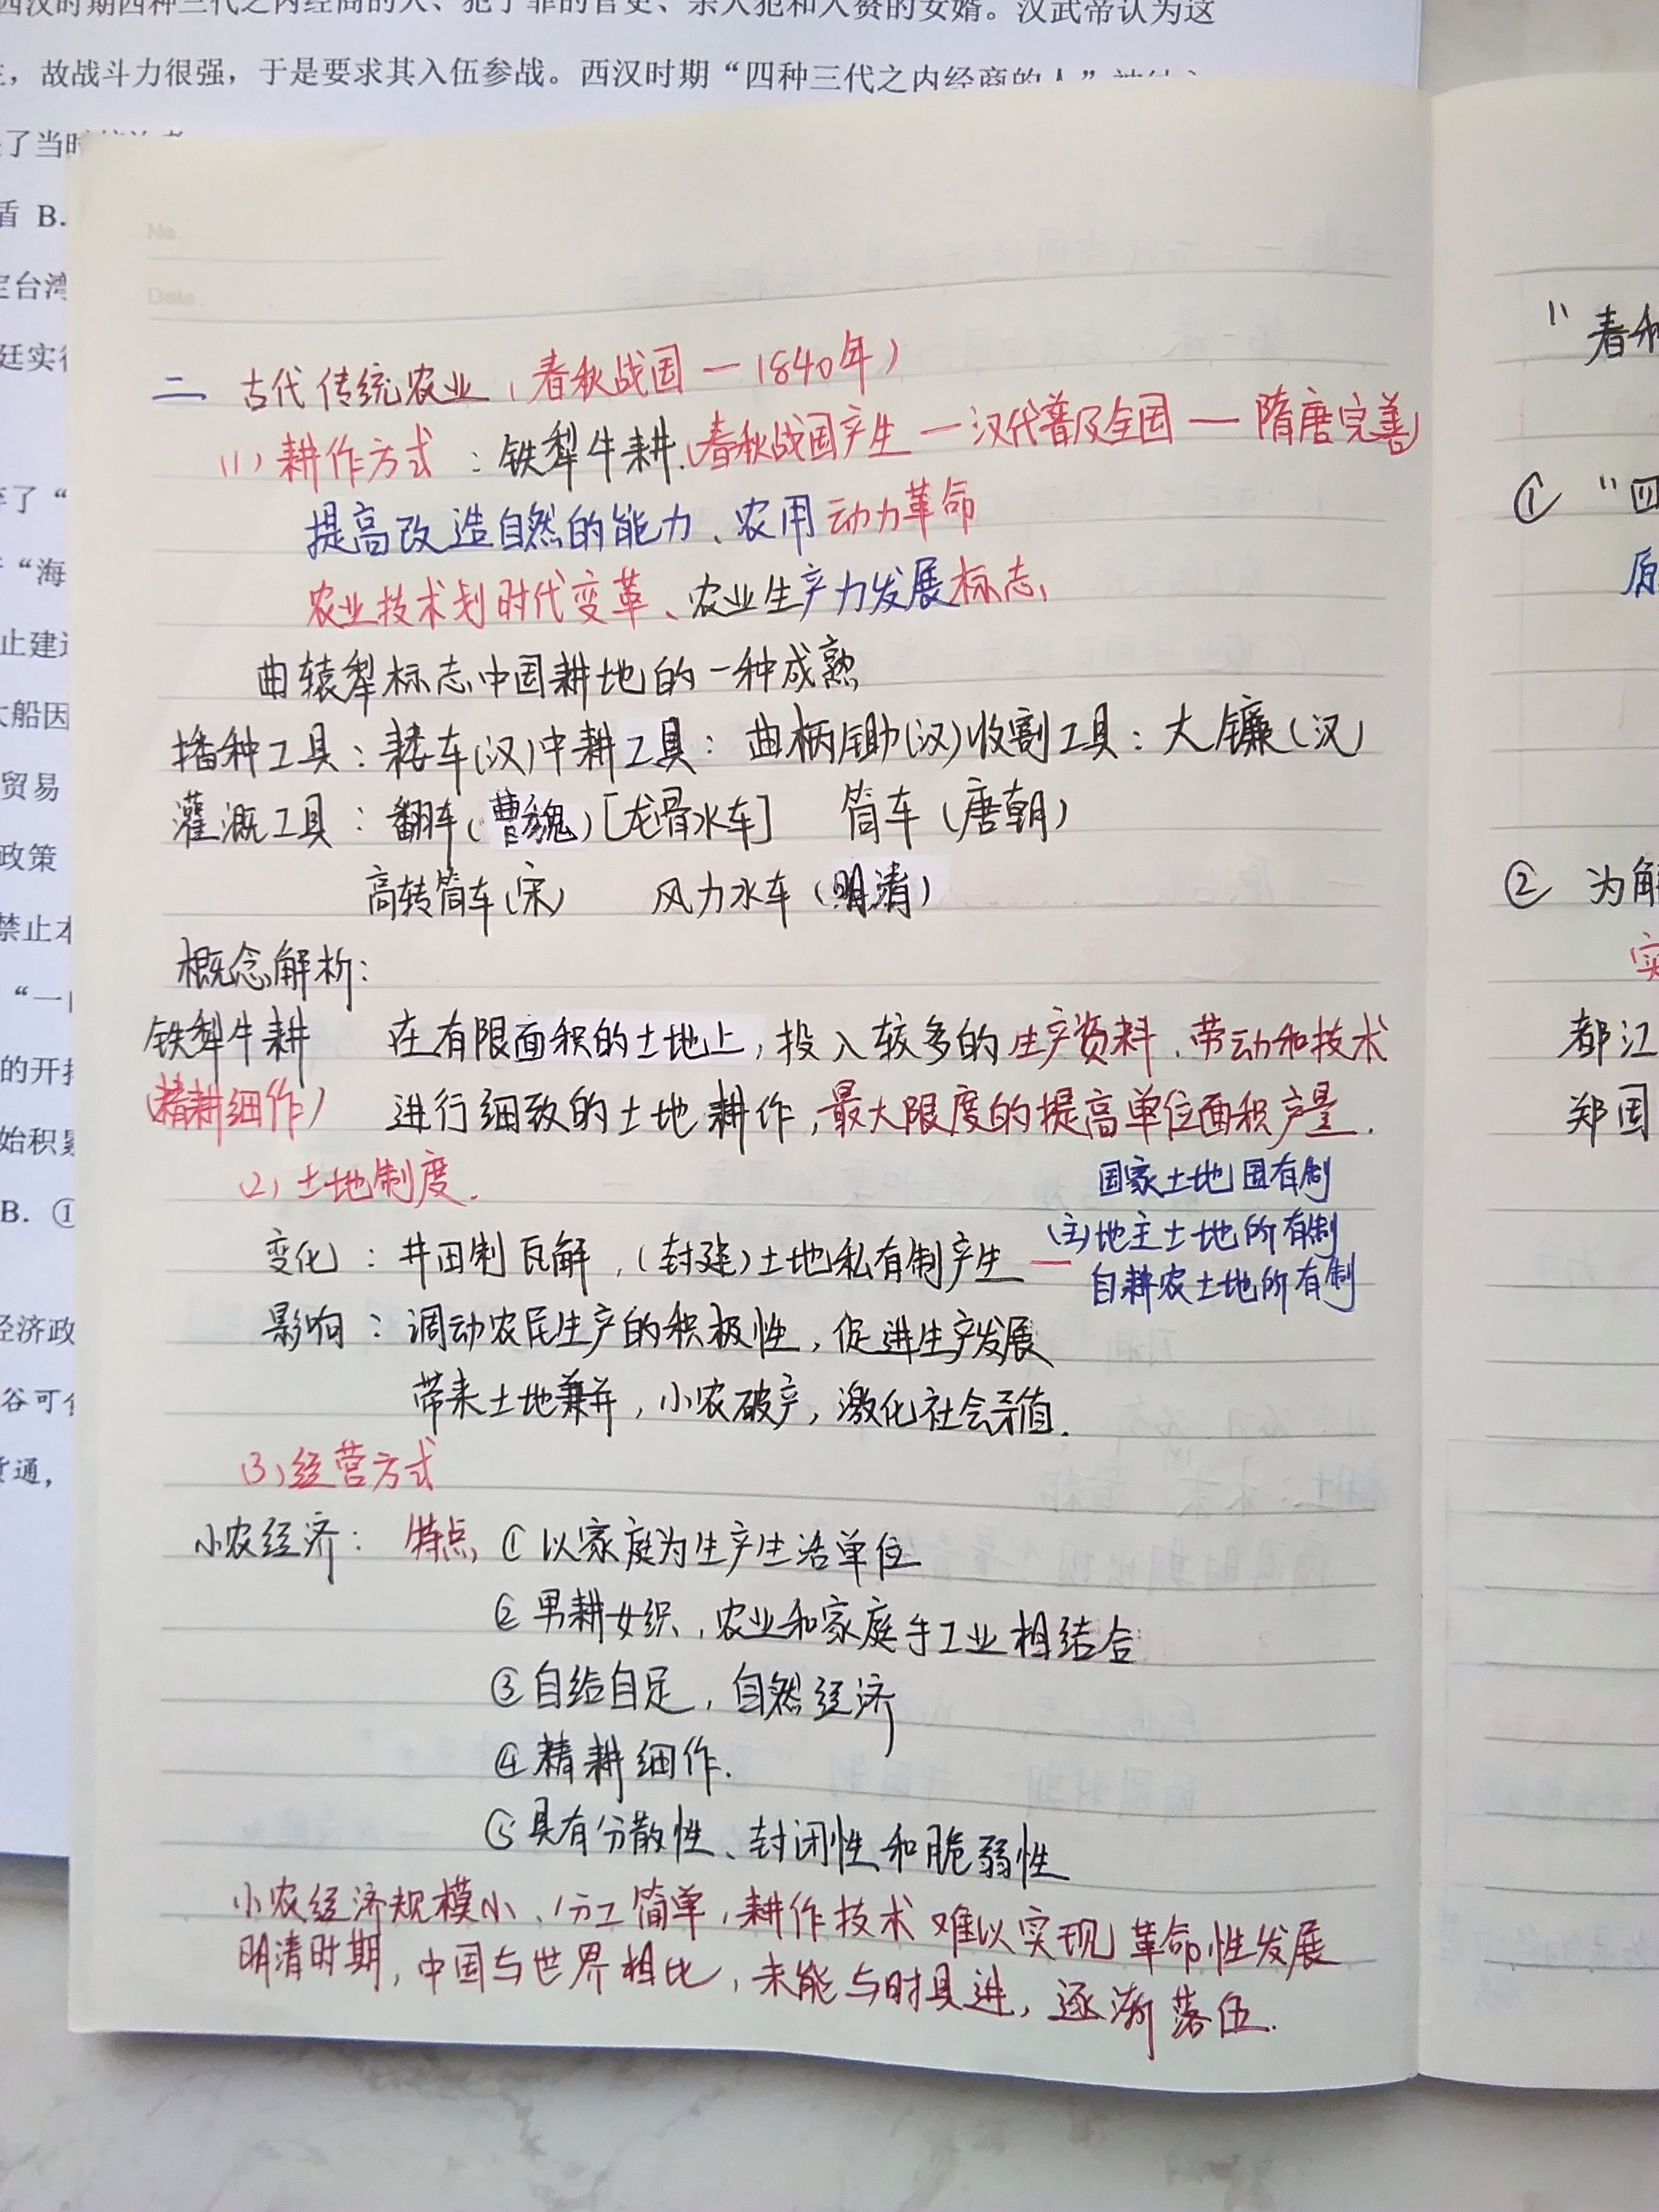 西汉时期四种三代之内经商的人、犯了罪的官吏、杀人犯和入赘的女婿。汉武帝认为这
，故战斗力很强，于是要求其入伍参战。西汉时期“四种三代之内经商的人”
了当时
盾 B.
定台湾
廷实行
了“
“海
止建造
大船因
贸易
政策
禁止本
“一
的开
始积累
B. ①
经济政
谷可
货通，
No.
Date.
二 古代传统农业（春秋战国—1840年）
(1) 耕作方式：铁犁牛耕（春秋战国产生—汉代普及全国—隋唐完善）
提高改造自然的能力、农用动力革命
农业技术划时代变革、农业生产力发展标志
曲辕犁标志中国耕地的一种成熟
播种工具：耧车(汉)中耕工具：曲柄锄(汉)收割工具：大镰(汉)
灌溉工具：翻车(曹魏)[龙骨水车] 筒车(唐朝)
高转筒车(宋) 风力水车(明清)
概念解析：
铁犁牛耕 在有限面积的土地上，投入较多的生产资料、劳动和技术
(精耕细作) 进行细致的土地耕作，最大限度的提高单位面积产量.
(2) 土地制度.
国家土地国有制
变化：井田制瓦解，(封建)土地私有制产生— (主)地主土地所有制
自耕农土地所有制
影响：调动农民生产的积极性，促进生产发展
带来土地兼并，小农破产，激化社会矛盾.
(3) 经营方式
小农经济：特点 ①以家庭为生产生活单位
②男耕女织，农业和家庭手工业相结合
③自给自足，自然经济
④精耕细作.
⑤具有分散性、封闭性和脆弱性
小农经济规模小、分工简单，耕作技术难以实现革命性发展
明清时期，中国与世界相比，未能与时具进，逐渐落伍.
(1) 春秋
① “四
原
② 为解
实
都江
郑国